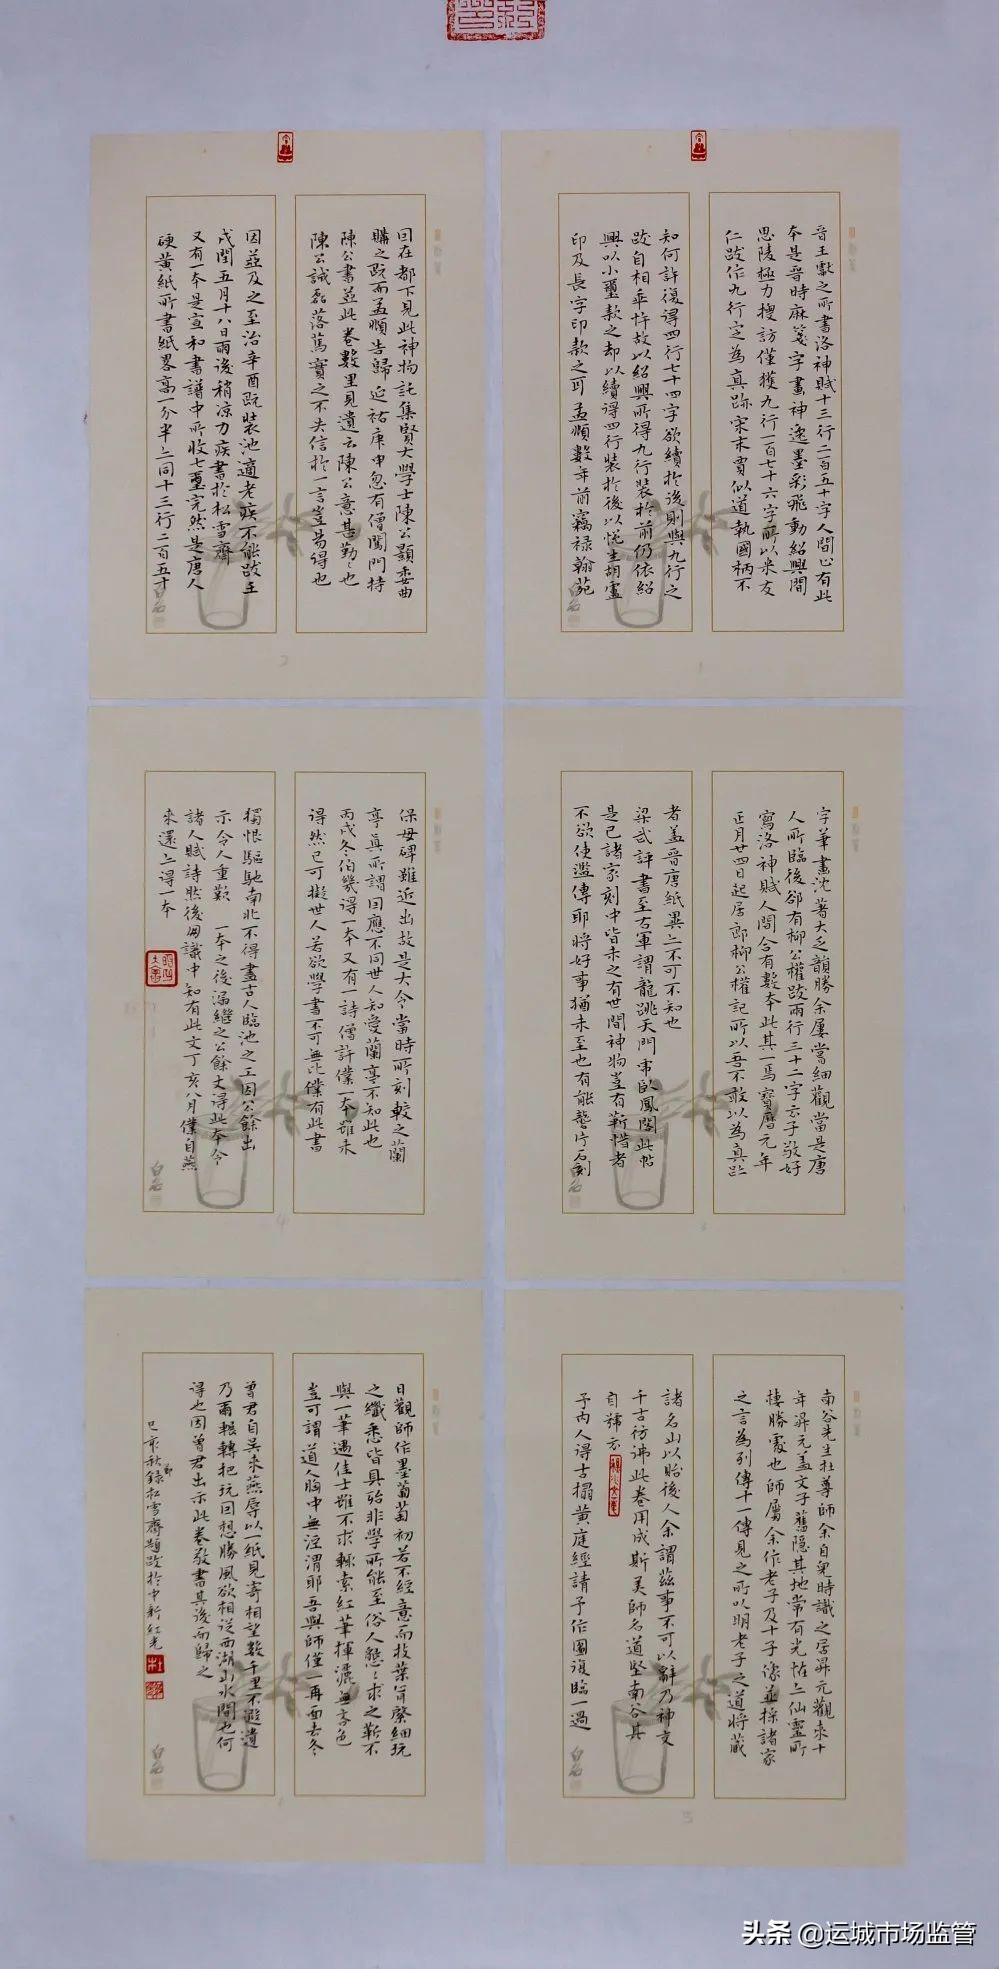 晉王獻之所書洛神賦十三行二百五十字人間止有此
本是晉時麻箋字畫神逸墨彩飛動紹興間
思陵極力搜訪僅獲九行一百七十六字所以米友
仁跋作九行定為真跡宋末賈似道執國柄不
知何許復得四行七十四字欲續於後則與九行之
跋自相乖忤故以紹興所得九行裝於前仍依紹
興以小璽款之却以續得四行裝於後以悅生胡盧
印及長字印款之耳孟頫數年前竊祿翰苑
囙在都下見此神物託集賢大學士陳公顥委曲
購之既而孟頫告歸延祐庚申忽有僧闖門持
陳公書並此卷數里見遺云陳公意甚勤〻也
陳公誠磊落篤實之不失信於一言豈易得也
因茲及之至治辛酉既裝池適老疾不能跋壬
戌閏五月十八日雨後稍凉力疾書於松雪齋
又有一本是宣和書譜中所收七璽完然是唐人
硬黃紙所書紙畧高一分半亦同十三行二百五十
字筆畫沈著大乏韻勝余屢嘗細觀當是唐
人所臨後卻有柳公權跋兩行三十二字云子敬好
寫洛神賦人間合有數本此其一焉寶曆元年
正月廿四日起居郎柳公權記所以吾不敢以為真跡
者盖晉唐紙異亦不可不知也
梁武評書至右軍謂龍跳天門帍臥鳳閣此帖
是已諸家刻中皆未之有世間神物豈有靳惜者
不欲使濫傳耶將好事猶未至也有能礱片石刻
保母碑雖近出故是大令當時所刻較之蘭
亭真所謂固應不同世人知受蘭亭不知此也
丙戌冬伯幾得一本又有一詩僧許僕一本雖未
得然已可擬世人若欲學書不可無此僕有此書
獨恨驅馳南北不得盡古人臨池之工因公餘出
示令人重歎 一本之後滿繼之公餘丈得此本令
諸人賦詩然後朋識中知有此文丁亥八月僕自燕
來還亦得一本
南谷先生杜尊師余自兒時識之居昇元觀表十
年昇元盖文子舊隱其地常有光怪亦仙靈所
棲勝處也師屬余作老子及十子像並採諸家
之言為列傳十一傳見之所以明老子之道將藏
諸名山以貽後人余謂茲事不可以辭乃神交
千古彷彿此卷用成斯美師名道堅南谷其
自號云
予内人得古搨黃庭經請予作圖復臨一過
日觀師作墨葡萄初若不經意而枝葉肯綮細玩
之纖悉皆具殆非學所能至俗人懇〻求之靳不
與一筆遇佳士雖不求輒索紅筆揮灑無吝色
豈可謂道人胸中無涇渭耶吾與師僅一再面去冬
曾君自吳來燕辱以一紙見寄相望數千里不遐遺
乃爾輾轉把玩回想勝風欲相從西湖山水間也何
得也因曾君出示此卷敬書其後而歸之
己亥秋錄松雪齋題跋於中新紅光
头条 @运城市场监管